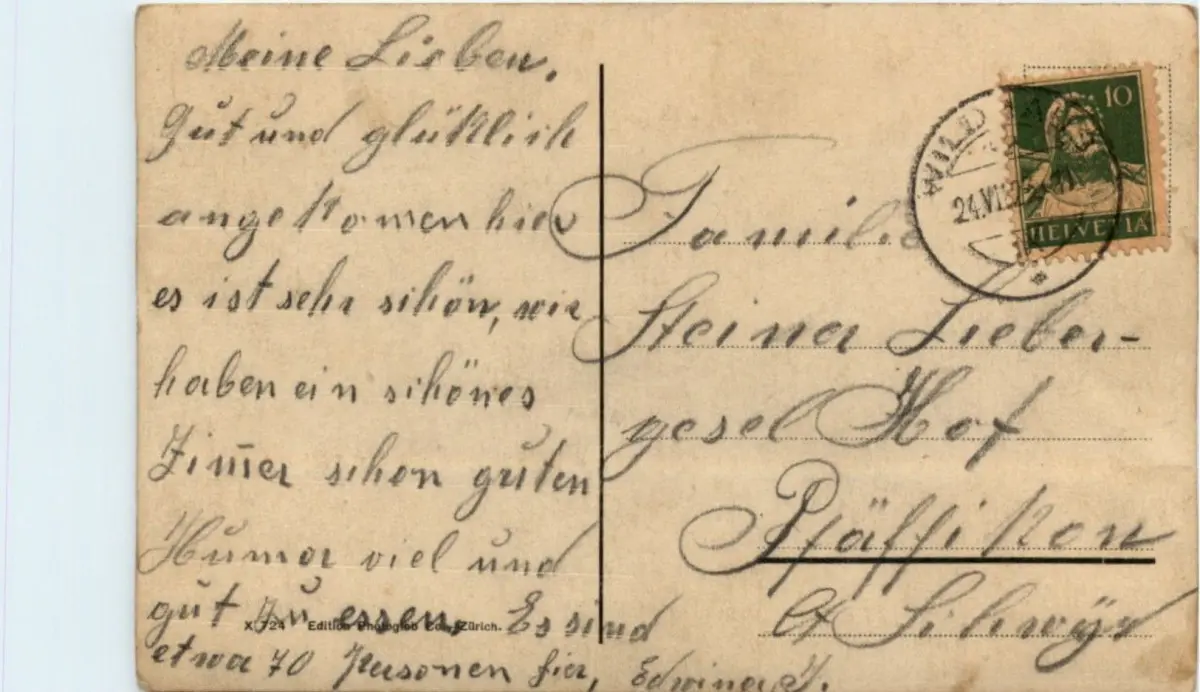 Meine Lieben.
Gut und glüklich
angekomen hier
es ist sehr schön, wir
haben ein schönes
Zim̅er schon guten
Humor viel und
gut zu essen, Es sind
etwa 70 Personen hier,
X 724 Edition Photoglob Co., Zürich.
Familie
Steina Lieber-
gesel Hof
Pfäffikon
Ct Schwyz
WILD
24.VI.
10
HELVETIA